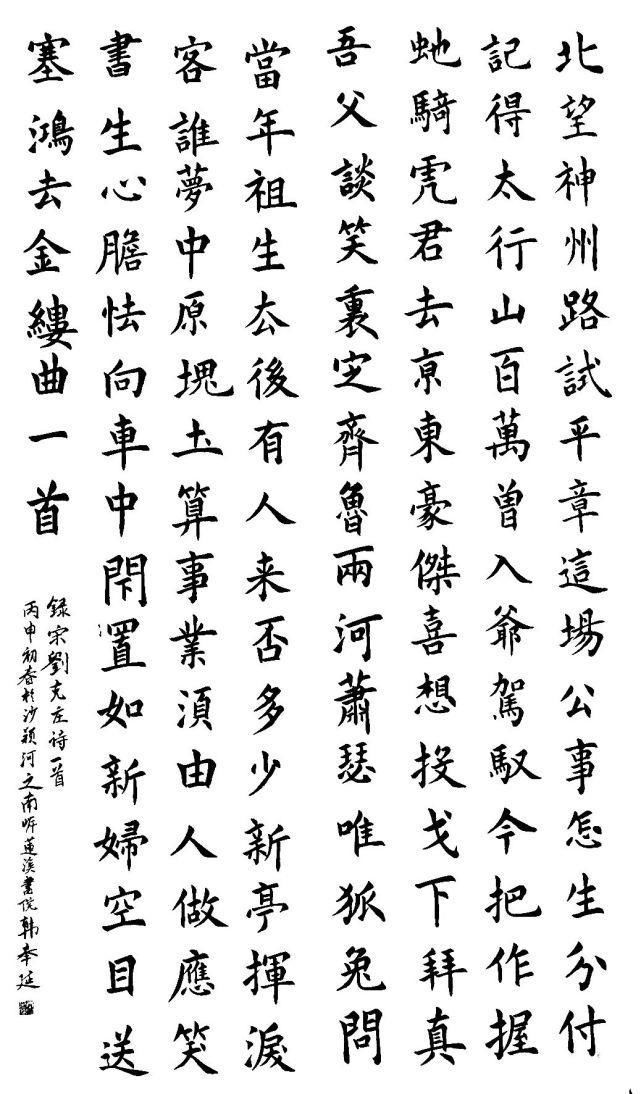 北望神州路試平章這場公事怎生分付
記得太行山百萬曾入爺駕馭今把作握
虵騎虎君去亰東豪傑喜想投戈下拜真
吾父談笑裏定齊魯兩河蕭瑟唯狐兔問
當年祖生去後有人来否多少新亭揮淚
客誰夢中原塊土算事業須由人做應笑
書生心膽怯向車中閉置如新婦空目送
塞鴻去金縷曲一首
録宋劉克庄诗一首
丙申初春於沙颍河之南畔蓮溪書院韩奉延